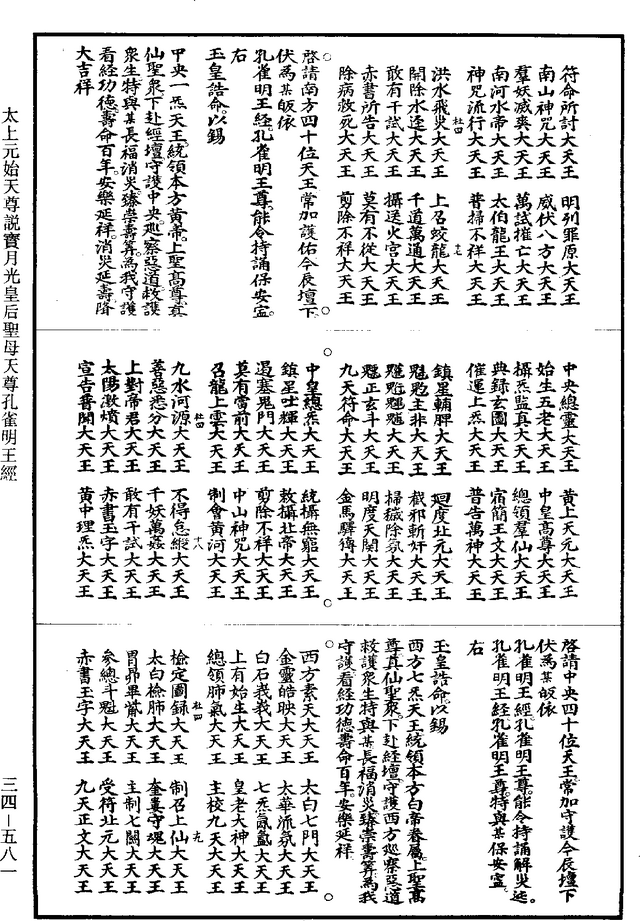 符命所討大天王　明列罪原大天王
南山神咒大天王　威伏八方大天王
羣妖滅爽大天王　萬試摧亡大天王
南河水帝大天王　太伯龍王大天王
神咒流行大天王　普掃不祥大天王
洪水飛災大天王　上召蛟龍大天王
開除水逕大天王　千道萬通大天王
敢有干試大天王　攝送火宮大天王
赤書所告大天王　莫有不從大天王
除病救死大天王　剪除不祥大天王
啓請南方四十位天王常加護佑今辰壇下
伏爲某皈依
孔雀明王經孔雀明王尊能令持誦保安寍
右
玉皇誥命以錫
中央一炁天王統領本方黃帝上聖高尊真
仙聖衆下赴經壇守護中央廵察惡道救護
衆生特與某長福消災臻崇壽筭爲我守護
看經功德壽命百年安樂延祥消災延壽降
大吉祥
中央總靈大天王　黃上天元大天王
始生五老大天王　中皇高尊大天王
攝炁監真大天王　總領羣仙大天王
典録玄圖大天王　宿簡玉文大天王
催運上炁大天王　普告萬神大天王
鎮星輔脾大天王　廻度北元大天王
魁魁主非大天王　截邪斬奸大天王
魁正玄斗大天王　明度天關大天王
九天符命大天王　金馬驛傳大天王
中皇總炁大天王　統攝無窮大天王
鎮星吐輝大天王　敕攝北帝大天王
遏塞鬼門大天王　剪除不祥大天王
莫有當前大天王　中山神咒大天王
召龍上雲大天王　制會黃河大天王
九水河源大天王　不得怠縱大天王
善惡悉分大天王　千妖萬姦大天王
上對帝君大天王　敢有干試大天王
太陽激憤大天王　赤書玉字大天王
宣告普聞大天王　黃中理炁大天王
啓請中央四十位天王常加守護今辰壇下
伏爲某皈依
孔雀明王經孔雀明王尊能令持誦解災迍
孔雀明王經孔雀明王尊特與某保安寍
右
玉皇誥命以錫
西方七炁天王統領本方白帝眷屬上聖高
尊真仙聖衆下赴經壇守護西方廵察惡道
救護衆生特與某長福消災臻崇壽筭爲我
守護看經功德壽命百年安樂延祥
西方素天大天王　太白七門大天王
金靈皓映大天王　太華流氛大天王
白石峩峩大天王　七炁氤氳大天王
上有始生大天王　皇老大神大天王
總領肺氣大天王　主校九天大天王
檢定圖録大天王　制召上仙大天王
太白檢肺大天王　奎婁守魂大天王
胃昴畢觜大天王　主制七關大天王
參總斗魁大天王　受符北元大天王
赤書玉字大天王　九天正文大天王
太上元始天尊説寶月光皇后聖母天尊孔雀明王經
三四－五八一